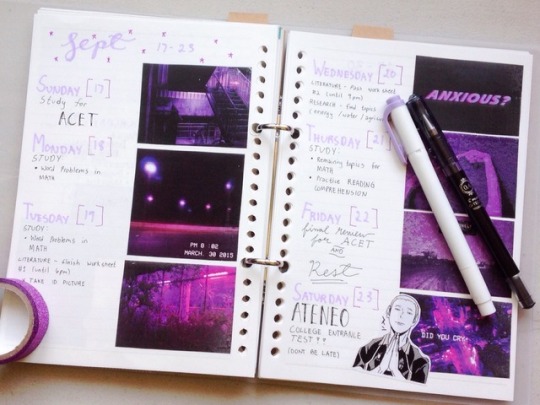 Sept 17-23
SUNDAY [17]
Study for
ACET
MONDAY [18]
STUDY
• Word Problems in
MATH
TUESDAY [19]
STUDY:
• Word Problems in
MATH
LITERATURE - Finish worksheet
#1 (until 6pm)
TAKE ID PICTURE
PM 8:02
MARCH. 30 2015
WEDNESDAY [20]
LITERATURE - Pass worksheet
#1 (until 4pm)
RESEARCH - Find topics
ANXIOUS?
THURSDAY [21]
STUDY:
• Reviewing topics for
MATH
• Practice READING
COMPREHENSION
FRIDAY [22]
final Review
for ACET
AND
Rest
SATURDAY [23]
ATENEO
COLLEGE ENTRANCE
TEST!!
(DONT BE LATE)
DID YOU CRY